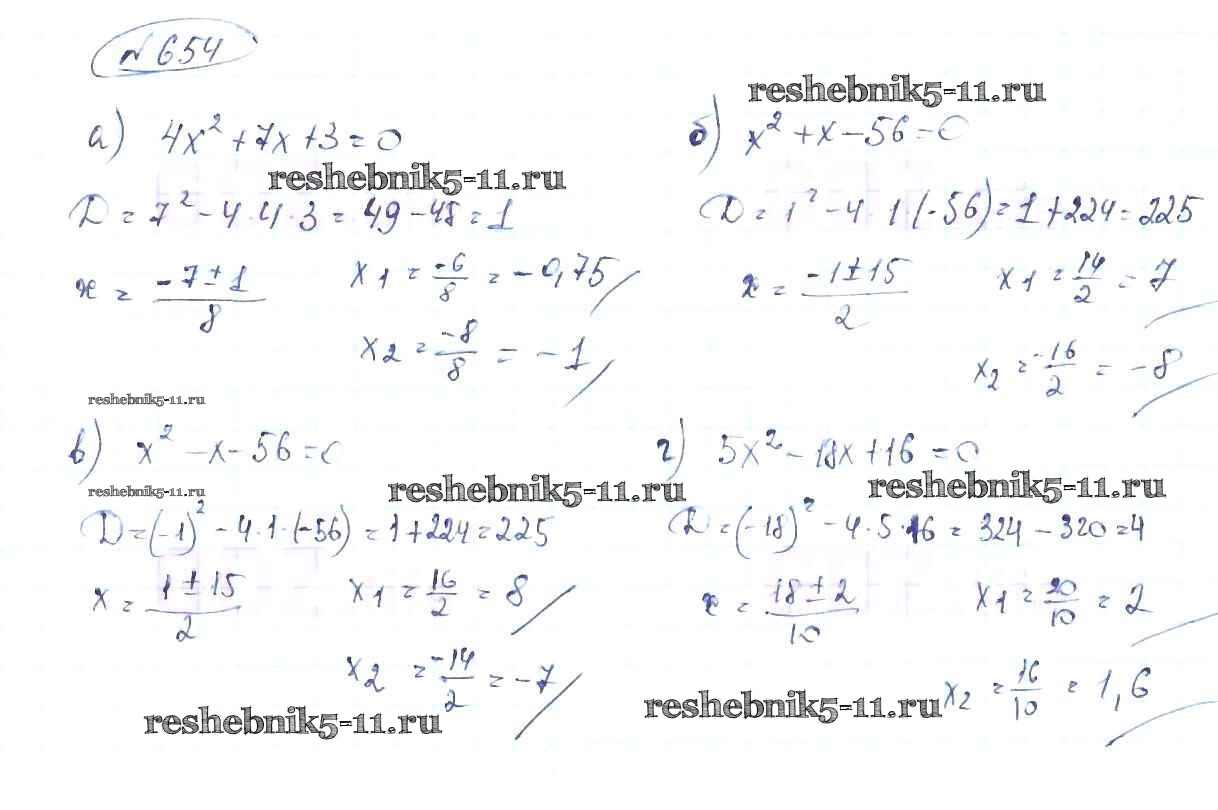 № 654
reshebnik5-11.ru
а) 4x² + 7x + 3 = 0
reshebnik5-11.ru
D = 7² - 4·4·3 = 49 - 48 = 1
x = (-7 ± 1)/8
x1 = -6/8 = -0,75
x2 = -8/8 = -1
б) x² + x - 56 = 0
D = 1² - 4·1(-56) = 1 + 224 = 225
x = (-1 ± 15)/2
x1 = 14/2 = 7
x2 = -16/2 = -8
reshebnik5-11.ru
в) x² - x - 56 = 0
reshebnik5-11.ru
reshebnik5-11.ru
D = (-1)² - 4·1·(-56) = 1 + 224 = 225
x = (1 ± 15)/2
x1 = 16/2 = 8
x2 = -14/2 = -7
reshebnik5-11.ru
г) 5x² - 18x + 16 = 0
reshebnik5-11.ru
D = (-18)² - 4·5·16 = 324 - 320 = 4
x = (18 ± 2)/10
x1 = 20/10 = 2
x2 = 16/10 = 1,6
reshebnik5-11.ru